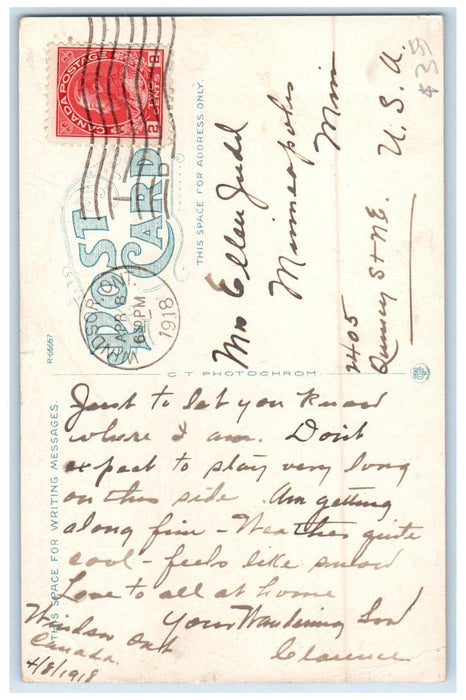 CANADA POSTAGE
2 TWO CENTS 2
POST CARD
WINDSOR, ONT.
APR 8
6 30 PM
1918
R-66667
THIS SPACE FOR ADDRESS ONLY.
Mrs Ellen Judd
Minneapolis
Minn
2405
St NE.
U.S.A.
$35
C.T. PHOTOCHROM
THIS SPACE FOR WRITING MESSAGES.
Just to let you know
where I am. Dont
expect to stay very long
on this side. Am getting
along fine - Weather quite
cool - feels like snow
Love to all at home
Your Wandering Son
Clarence
Windsor Ont
Canada.
4/8/1918